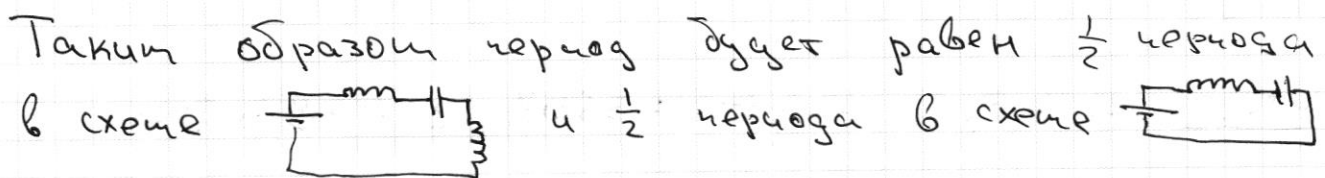 Таким образом период будет равен 1/2 периода
в схеме и 1/2 периода в схеме